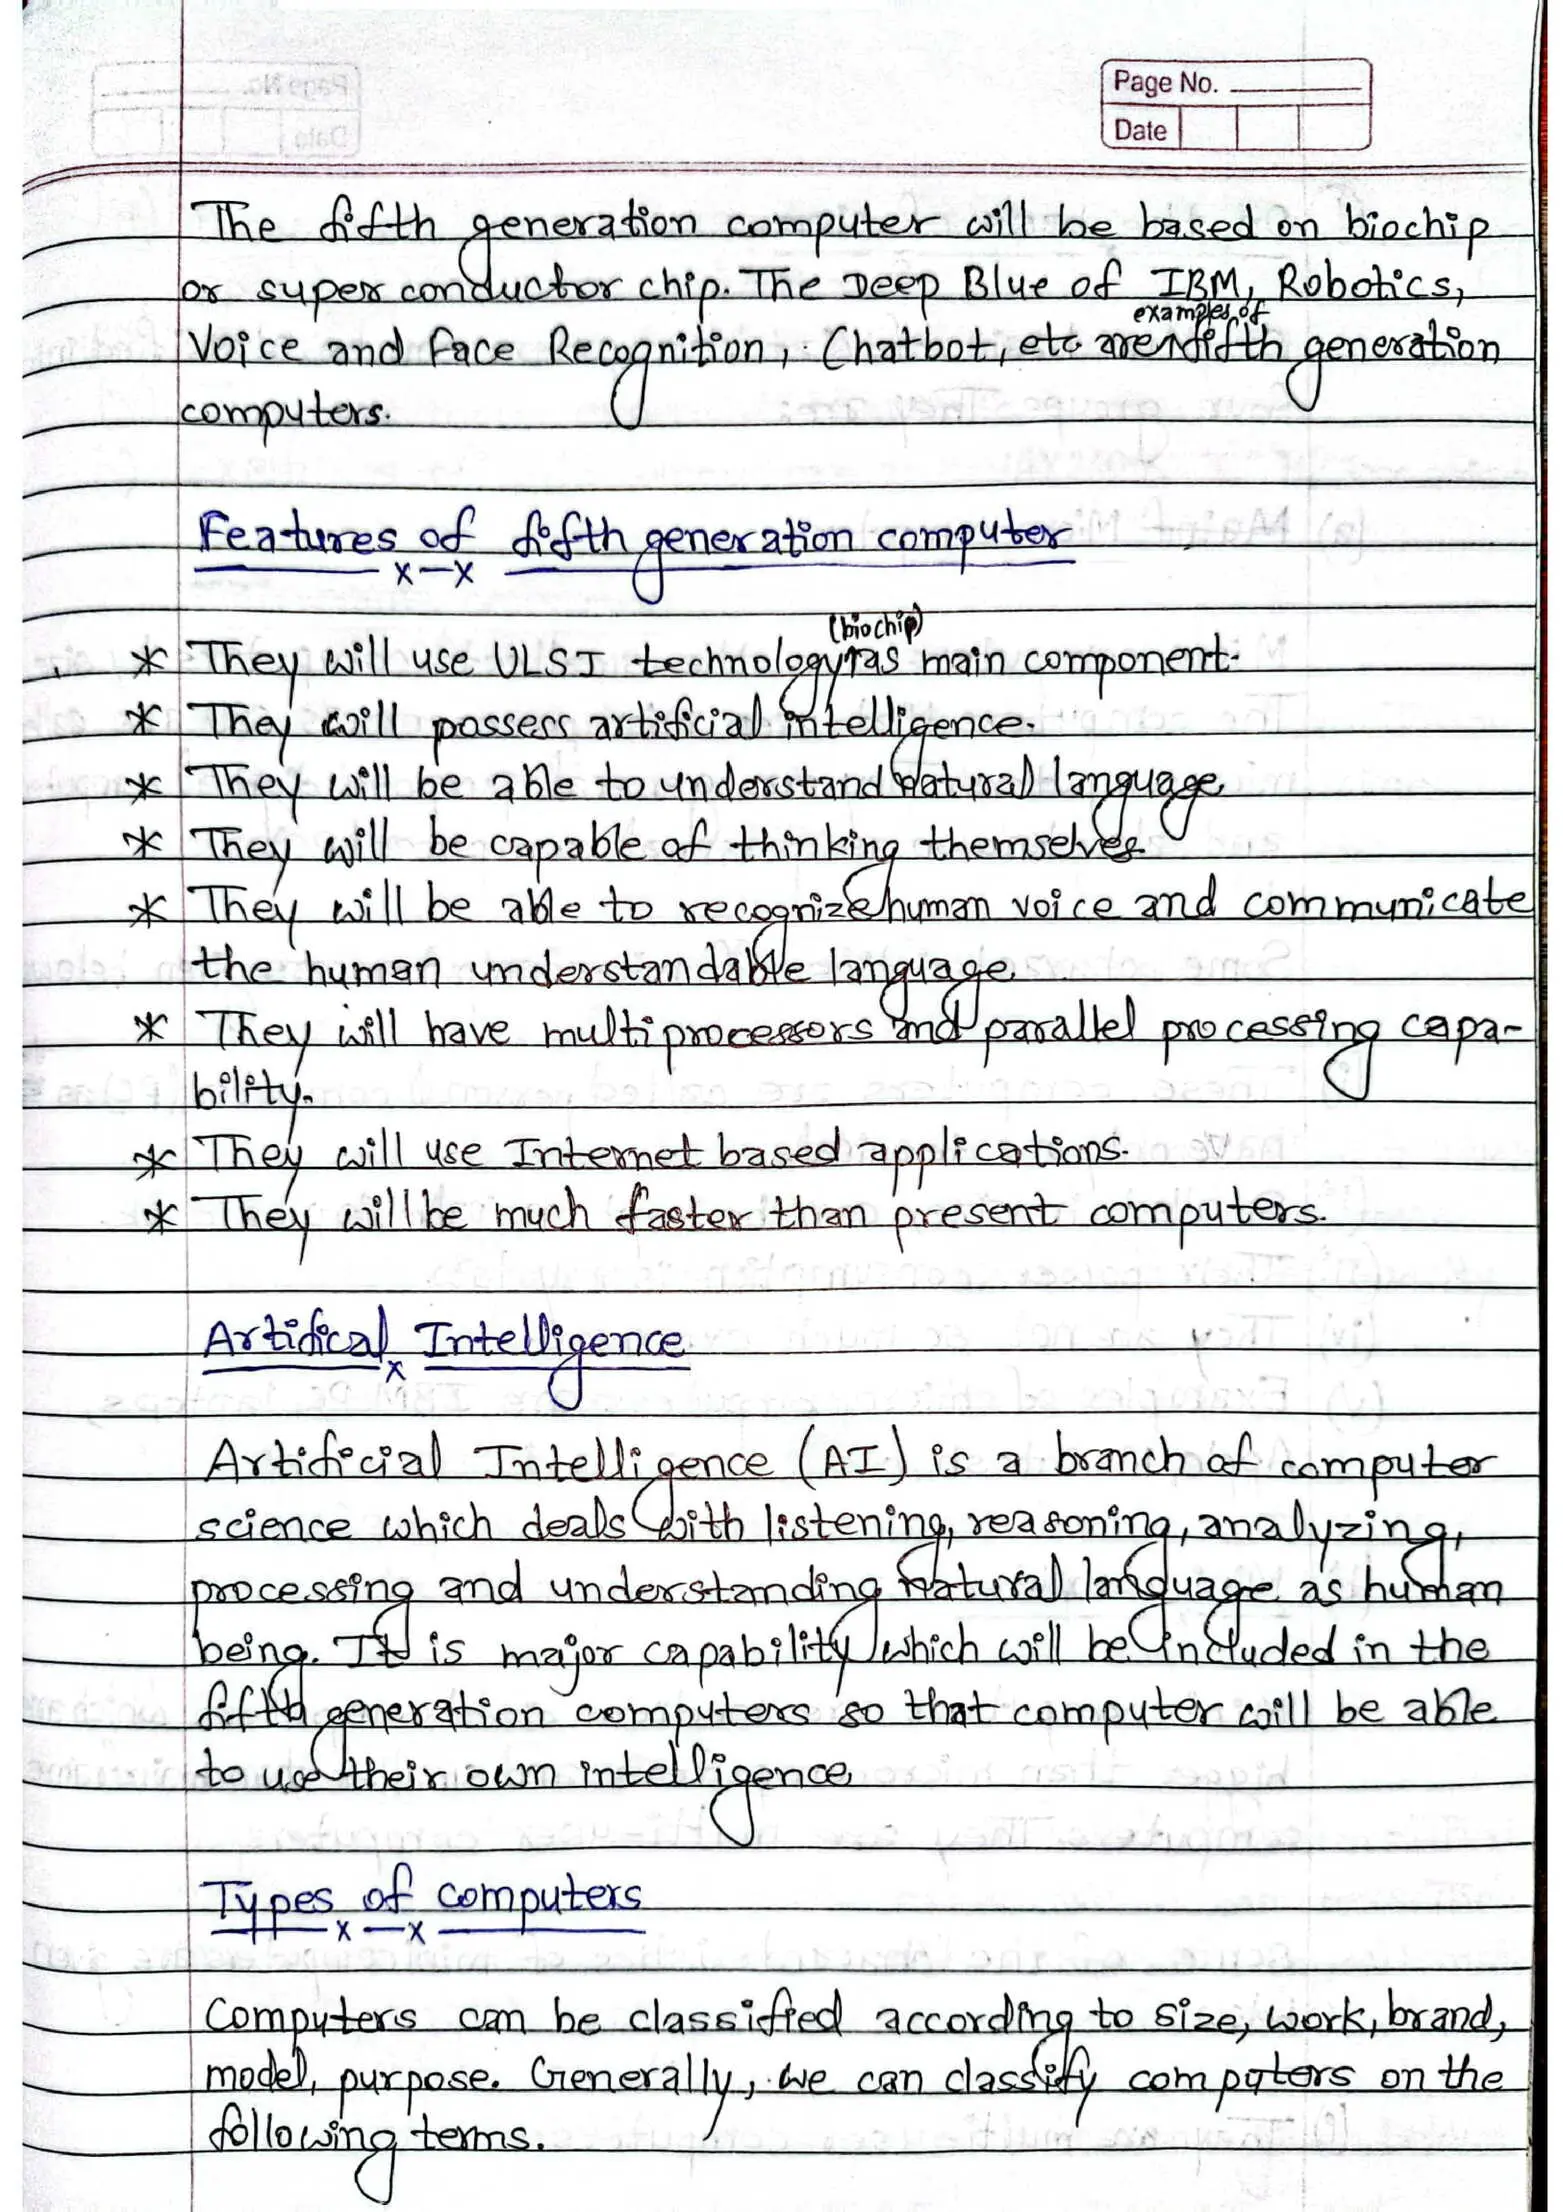 Page No.
Date
The fifth generation computer will be based on biochip
or super conductor chip. The Deep Blue of IBM, Robotics,
examples of
Voice and Face Recognition, Chatbot, etc are fifth generation
computers.
Features of fifth generation computer
x—x
(biochip)
* They will use ULSI technology as main component.
* They will possess artificial intelligence.
* They will be able to understand natural language
* They will be capable of thinking themselves.
* They will be able to recognize human voice and communicate
the human understandable language
* They will have multiprocessors and parallel processing capa-
bility.
* They will use Internet based applications.
* They will be much faster than present computers.
Artifical Intelligence
x
Artificial Intelligence (AI) is a branch of computer
science which deals with listening, reasoning, analyzing,
processing and understanding natural language as human
being. It is major capability which will be included in the
fifth generation computers so that computer will be able
to use their own intelligence
Types of computers
x—x
Computers can be classified according to size, work, brand,
model, purpose. Generally, we can classify computers on the
following terms.